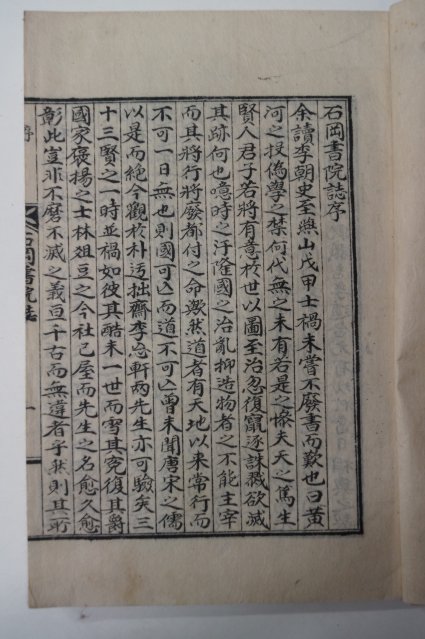 石岡書院誌序
余讀李朝史至燕山戊甲士禍未嘗不廢書而歎也曰黃
河之投偽學之禁何代無之未有若是之慘夫天之篤生
賢人君子若將有意於世以圖至治忽復竄逐誅戮欲滅
其跡何也噫時之汙隆國之治亂抑造物者之不能主宰
而其將行將廢都付之命歟然道者有天地以來常行而
不可一日無也則國可亡而道不可亡曾未聞唐宋之儒
以是而絶今觀於朴迂拙齋李忘軒兩先生亦可驗矣三
十三賢之一時並禍如彼其酷未一世而雪其寃復其爵
國家褒揚之士林俎豆之今社已屋而先生之名愈久愈
彰此豈非不磨不滅之義亘千古而無違者乎然則其所
石岡書院誌
序
一